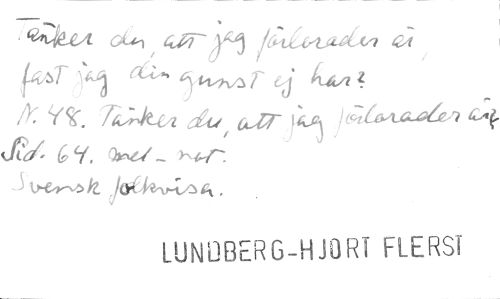 Tänker du, att jag förlorader är,
fast jag din gunst ej har?
N. 48. Tänker du, att jag förlorader är?
Sid. 64. mel-not.
Svensk folkvisa.
LUNDBERG-HJORT FLERST